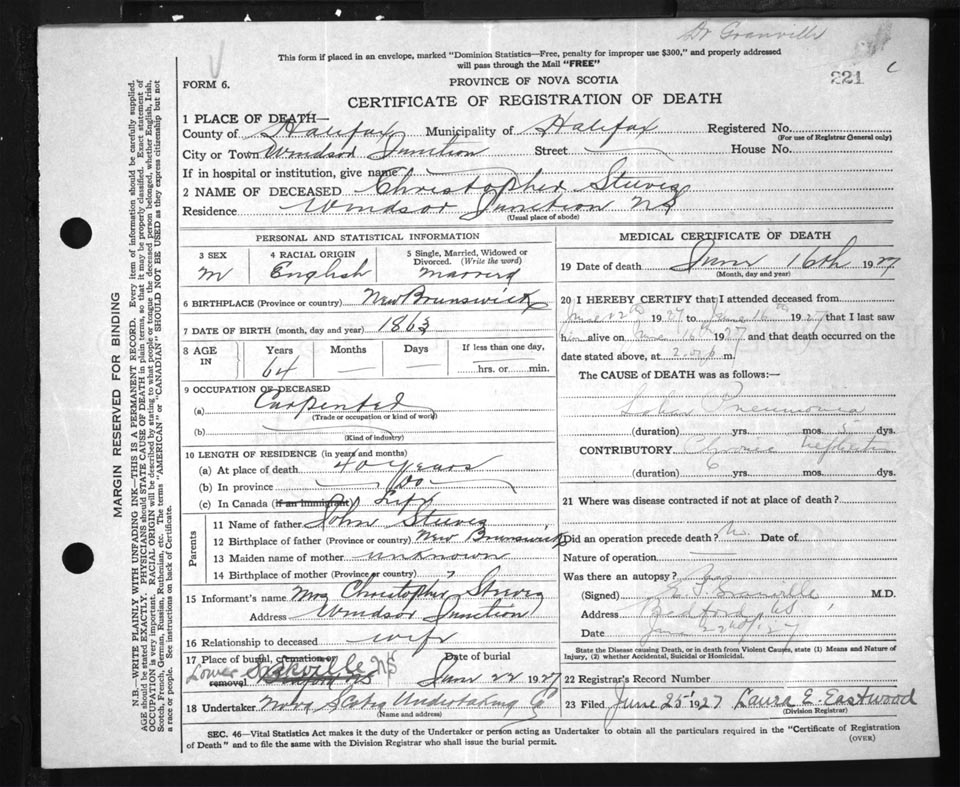 Dr Granville
This form if placed in an envelope, marked "Dominion Statistics—Free, penalty for improper use $300," and properly addressed
will pass through the Mail "FREE"
221
c
FORM 6.
PROVINCE OF NOVA SCOTIA
CERTIFICATE OF REGISTRATION OF DEATH
1 PLACE OF DEATH—
County of Halifax Municipality of Halifax Registered No.
(For use of Registrar General only)
City or Town Windsor Junction Street House No.
If in hospital or institution, give name
2 NAME OF DECEASED Christopher Steeves
Residence Windsor Junction NS
(Usual place of abode)
PERSONAL AND STATISTICAL INFORMATION
3 SEX 4 RACIAL ORIGIN 5 Single, Married, Widowed or
Divorced. (Write the word)
M English married
6 BIRTHPLACE (Province or country) New Brunswick
7 DATE OF BIRTH (month, day and year) 1863
8 AGE IN Years Months Days If less than one day,
64 — — hrs. or min.
9 OCCUPATION OF DECEASED
(a) Carpenter
(Trade or occupation or kind of work)
(b)
(Kind of industry)
10 LENGTH OF RESIDENCE (in years and months)
(a) At place of death 40 years
(b) In province do
(c) In Canada (if an immigrant) Life
Parents
11 Name of father John Steeves
12 Birthplace of father (Province or country) New Brunswick
13 Maiden name of mother unknown
14 Birthplace of mother (Province or country) "
15 Informant's name Mrs Christopher Steeves
Address Windsor Junction
16 Relationship to deceased wife
17 Place of burial, cremation or Date of burial
Lower Sackville NS
removal June 22 1927
18 Undertaker Nova Scotia Undertaking Co
(Name and address)
MEDICAL CERTIFICATE OF DEATH
19 Date of death June 16th 1927
(Month, day and year)
20 I HEREBY CERTIFY that I attended deceased from
1927 to June 16th 1927 that I last saw
him alive on June 16th 1927 and that death occurred on the
date stated above, at m.
The CAUSE of DEATH was as follows:—
Lobar Pneumonia
(duration) yrs. mos. 5 dys.
CONTRIBUTORY Chronic Nephritis
(duration) 6 yrs. mos. dys.
21 Where was disease contracted if not at place of death?
Did an operation precede death? No. Date of
Nature of operation
Was there an autopsy?
(Signed) Granville M.D.
Address Bedford NS
Date June 22nd '27
State the Disease causing Death, or in death from Violent Causes, state (1) Means and Nature of
Injury, (2) whether Accidental, Suicidal or Homicidal.
22 Registrar's Record Number
23 Filed June 25 1927 Laura E. Eastwood
(Division Registrar)
SEC. 46—Vital Statistics Act makes it the duty of the Undertaker or person acting as Undertaker to obtain all the particulars required in the "Certificate of Registration
of Death" and to file the same with the Division Registrar who shall issue the burial permit. (OVER)
MARGIN RESERVED FOR BINDING
N.B.—WRITE PLAINLY WITH UNFADING INK—THIS IS A PERMANENT RECORD. Every item of information should be carefully supplied.
AGE should be stated EXACTLY. PHYSICIANS should STATE CAUSE OF DEATH in plain terms, so that it may be properly classified. Exact statement of
OCCUPATION is very important. RACIAL ORIGIN will be described by stating to what people or tongue the deceased person belonged, whether English, Irish,
Scotch, French, German, Russian, Ruthenian, etc. The terms "AMERICAN" or "CANADIAN" SHOULD NOT BE USED as they express citizenship but not
a race or people. See instructions on back of Certificate.